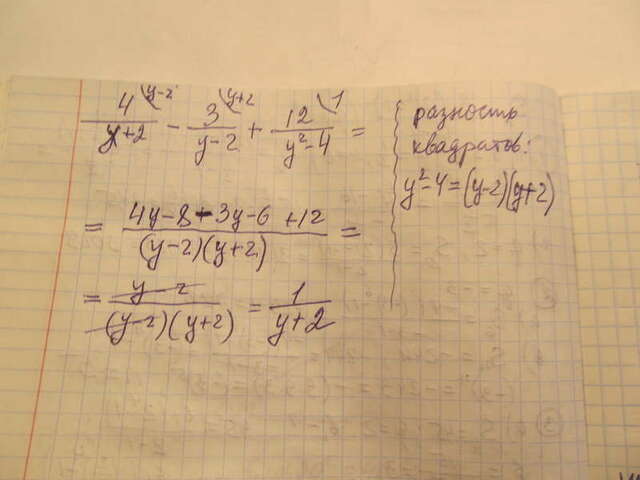 4 (y-2 3 (y+2 12 (1
y+2 - y-2 + y²-4 =
= 4y-8-3y-6+12 =
(y-2)(y+2)
= y-2 = 1
(y-2)(y+2) y+2
разность
квадратов:
y²-4=(y-2)(y+2)